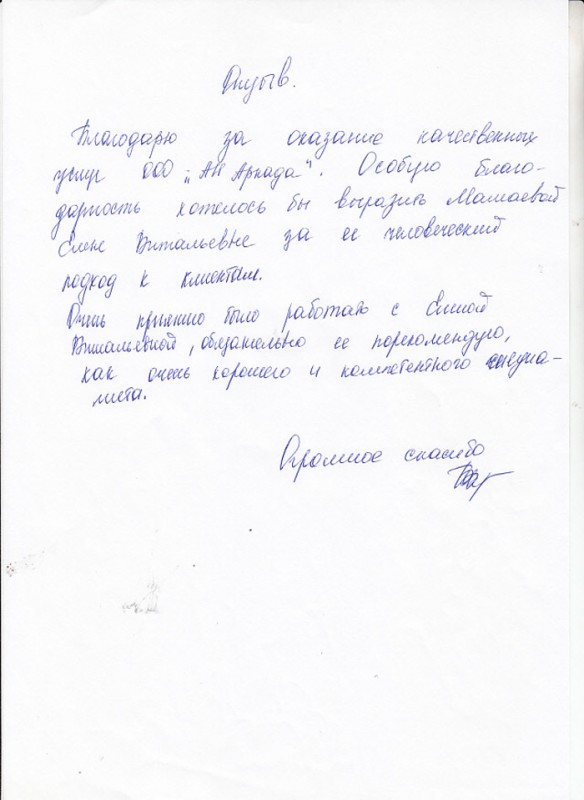 Отзыв.
Благодарю за оказание качественных
услуг ООО „АН Аркада". Особую благо-
дарность хотелось бы выразить Мамаевой
Елене Витальевне за ее человеческий
подход к клиентам.
Очень приятно было работать с Еленой
Витальевной, обязательно ее порекомендую,
как очень хорошего и компетентного специа-
листа.
Огромное спасибо